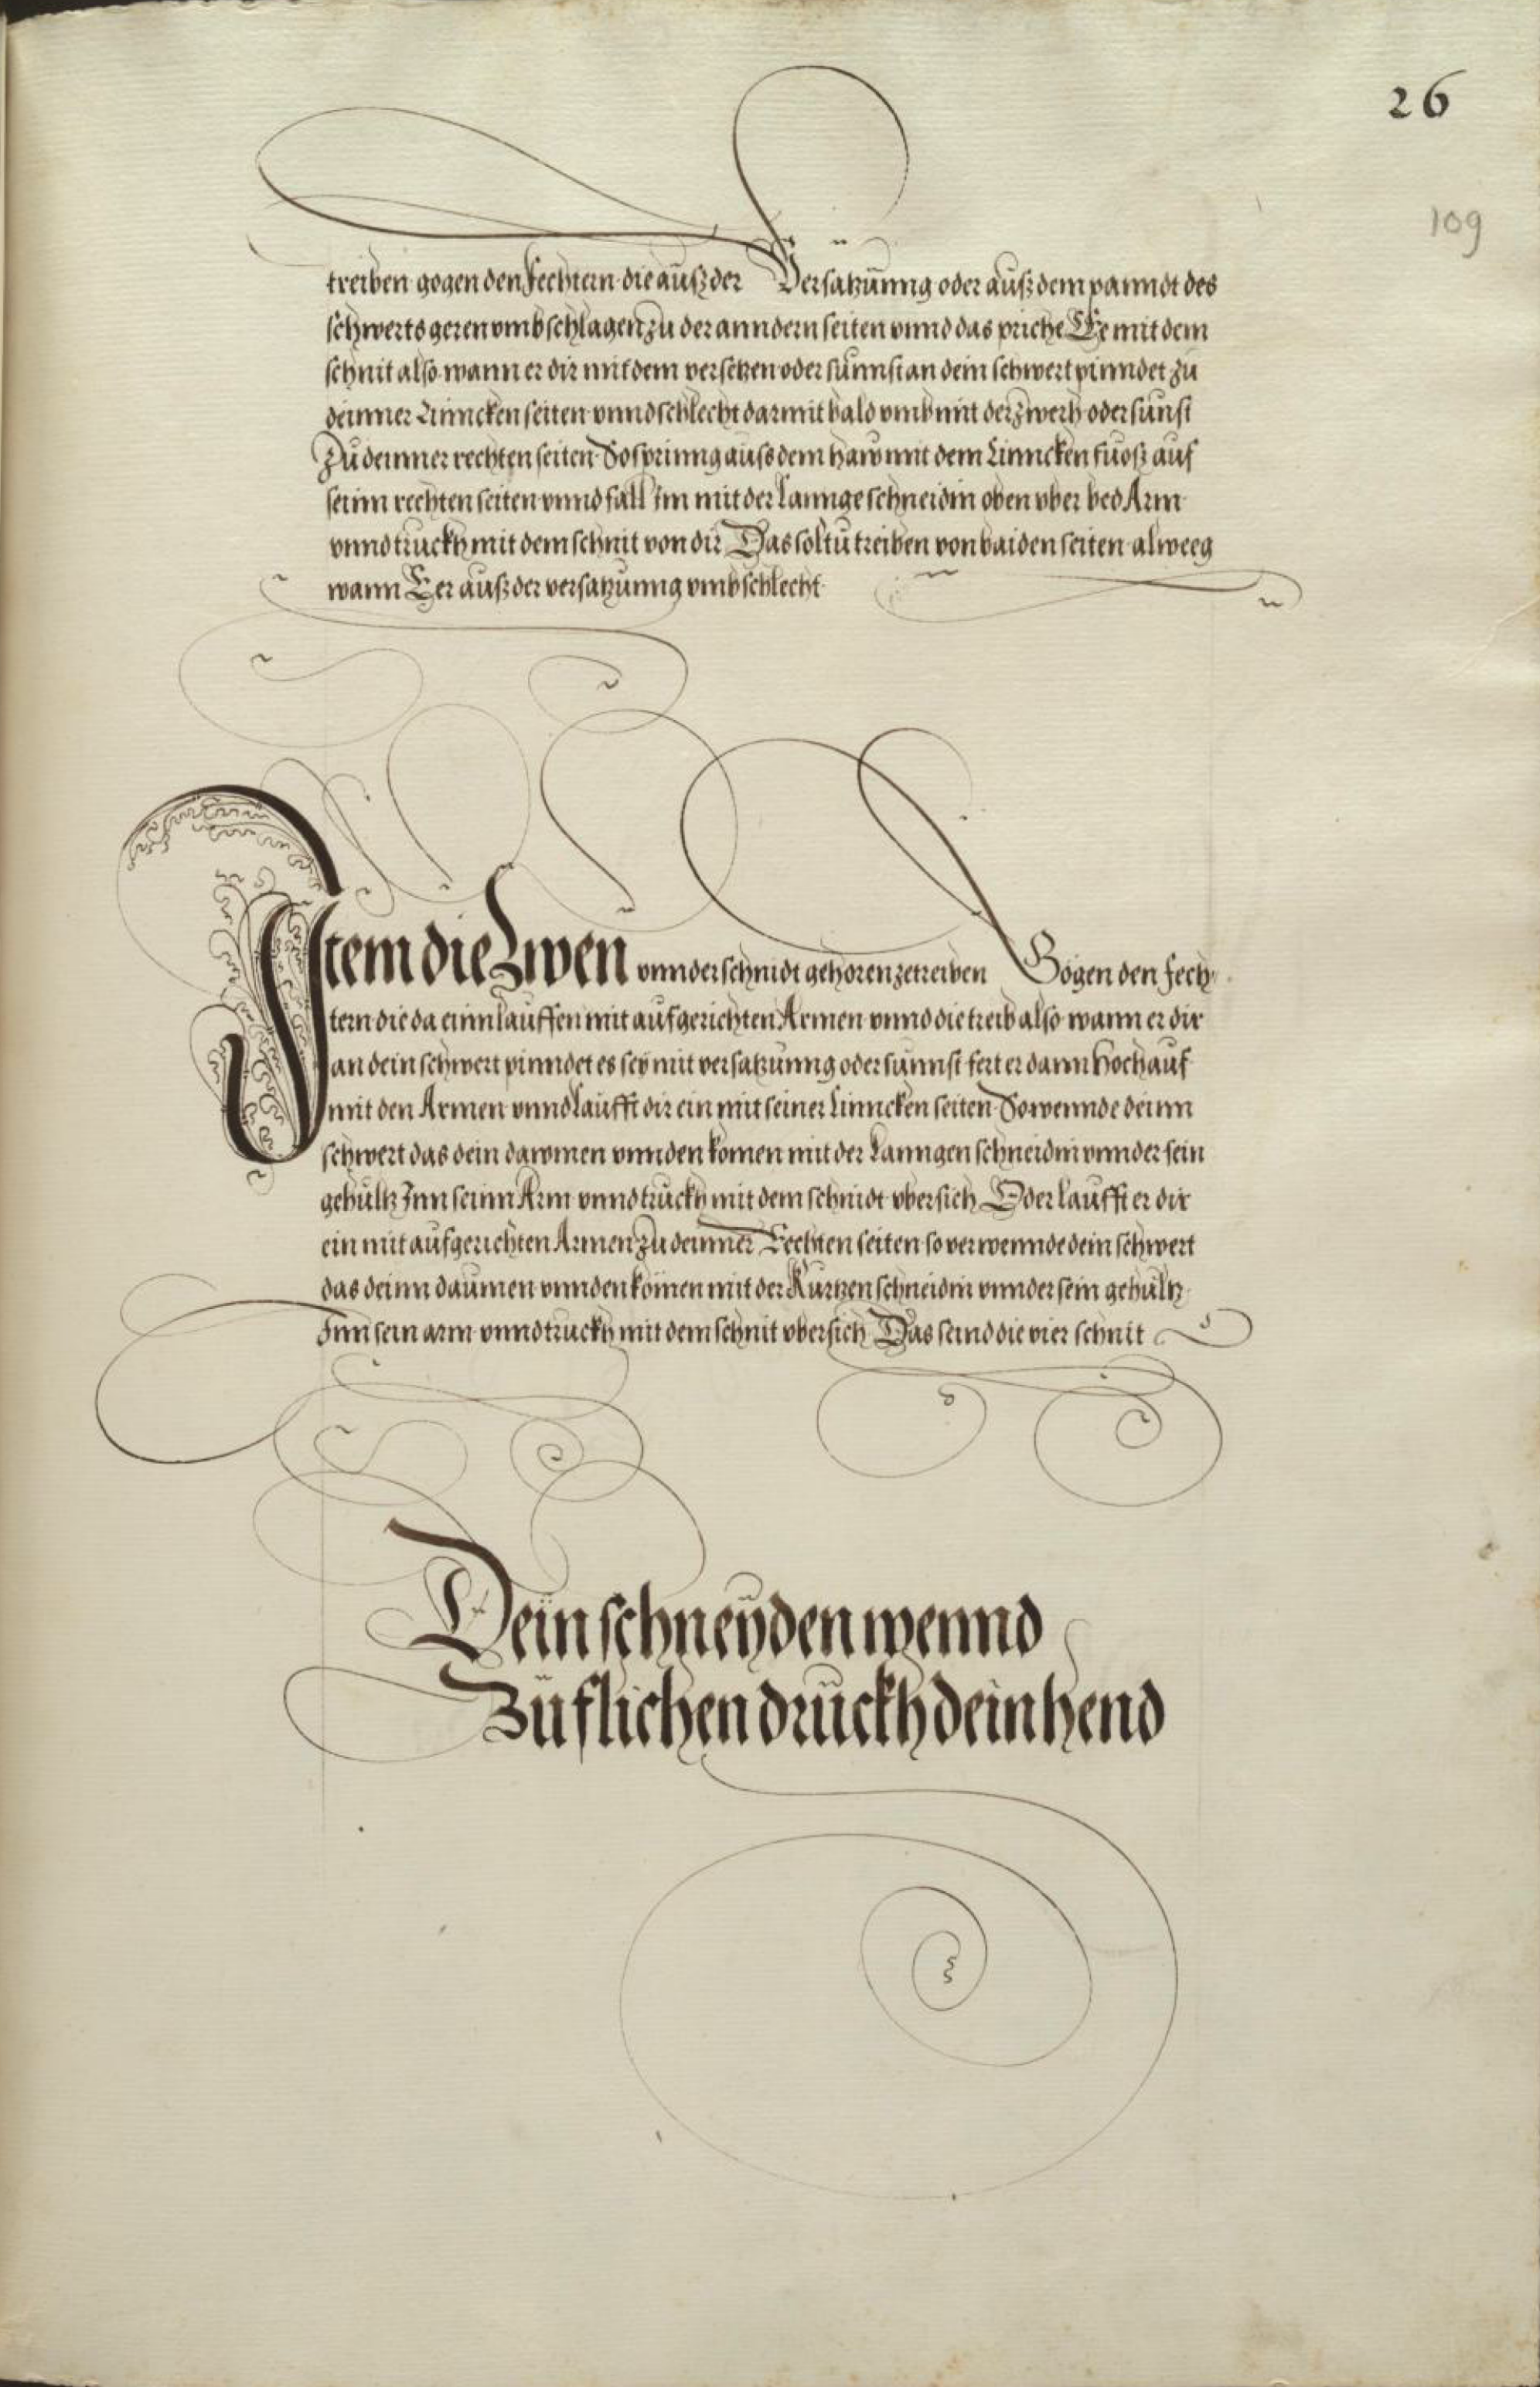 26
109
treiben gogen den fechtern die auß der Versatzünng oder auß dem panndt des
schwerts geren vmbschlagen zu der anndern seiten vnnd das priche Ee mit dem
schnit also wann er dir mit dem versetzen oder sünnst an dein schwert pinndet zu
deinner Linncken seiten vnnd schlecht darmit bald vmb mit der zwerh oder sünst
Zu deinner rechten seiten So sprinng auss dem haw mit dem Linncken fuoß auf
seinn rechten seiten vnnd fall Im mit der lannge schneidin oben vber bed Arm
vnnd truckh mit dem schnit von dir Das soltu treiben von baiden seiten alweeg
wann Eer auß der versatzunng vmbschlecht
Item die Zwen vnnderschnidt gehoren zetreiben Gogen den fech
tern die da einnlauffen mit aufgerichten Armen vnnd die treib also wann er dir
an dein schwert pinndet es sey mit versatzunng oder sünnst fert er dann Hoch auf
mit den Armen vnnd laufft dir ein mit seiner Linncken seiten So wennde deinn
schwert das dein dawmen vnnden komen mit der Lanngen schneidin vnnder sein
gehültz Inn seinn Arm vnnd truckh mit dem schnidt vbersich Oder laufft er dir
ein mit aufgerichten Armen zu deinner Rechten seiten so verwennde dein schwert
das deinn daumen vnnden komen mit der Kurtzen schneidin vnnder sein gehültz
Inn sein arm vnnd truckh mit dem schnit vbersich Das seind die vier schnit
Dein schneyden wennd
Zü flichen drückh dein hend